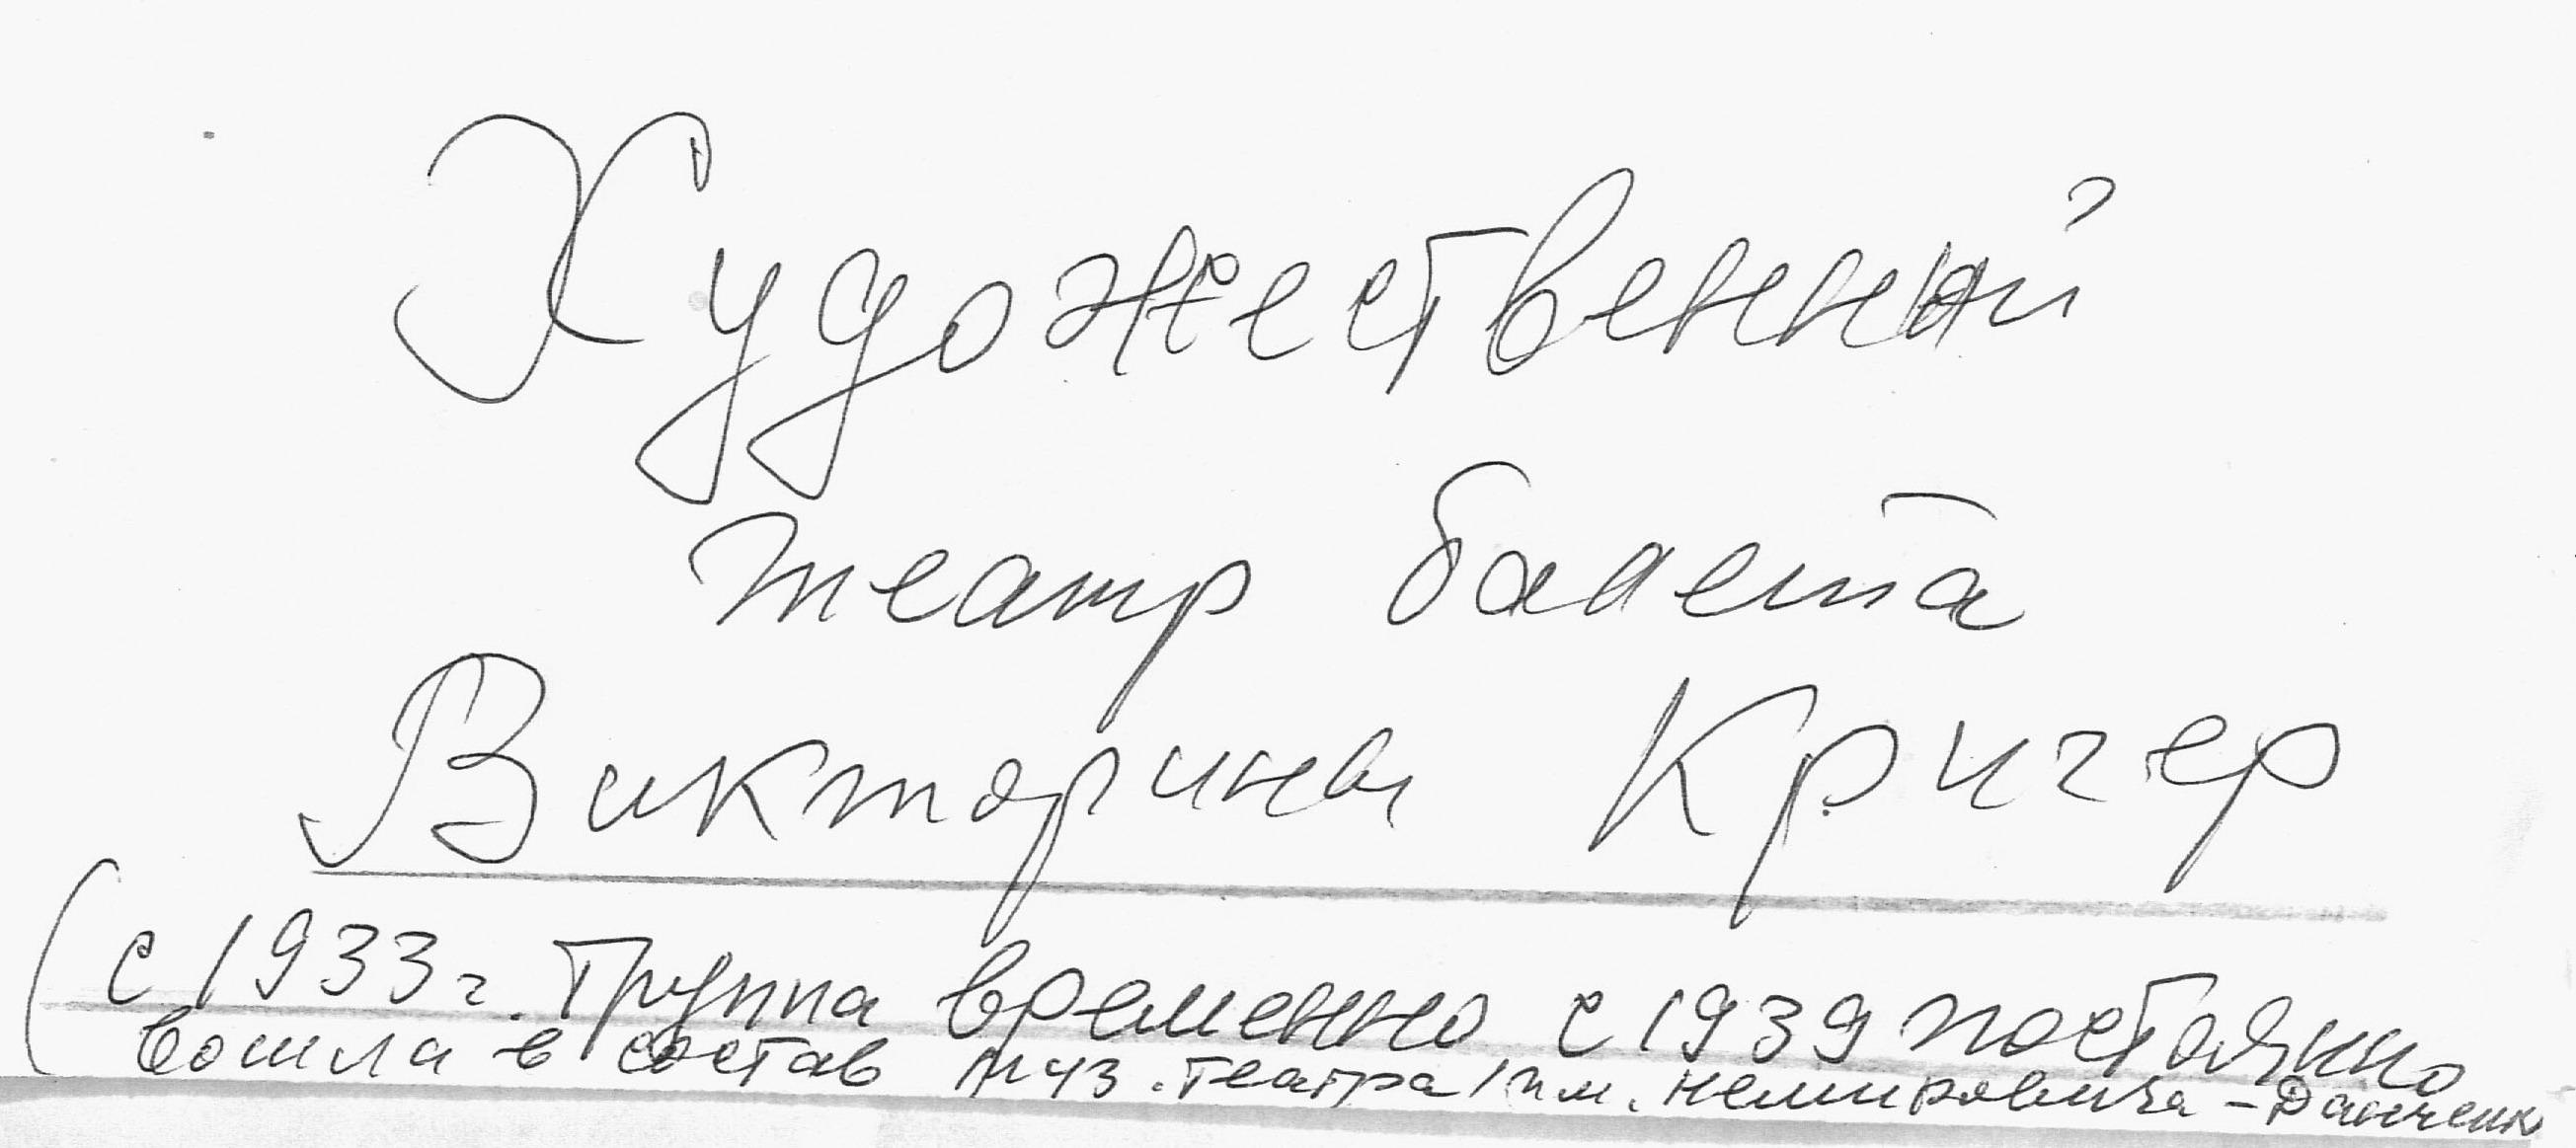 Художественный
театр балета
Викторины Кригер
(с 1933 г. Труппа временно с 1939 постоянно
вошла в состав муз. театра им. Немировича-Данченк